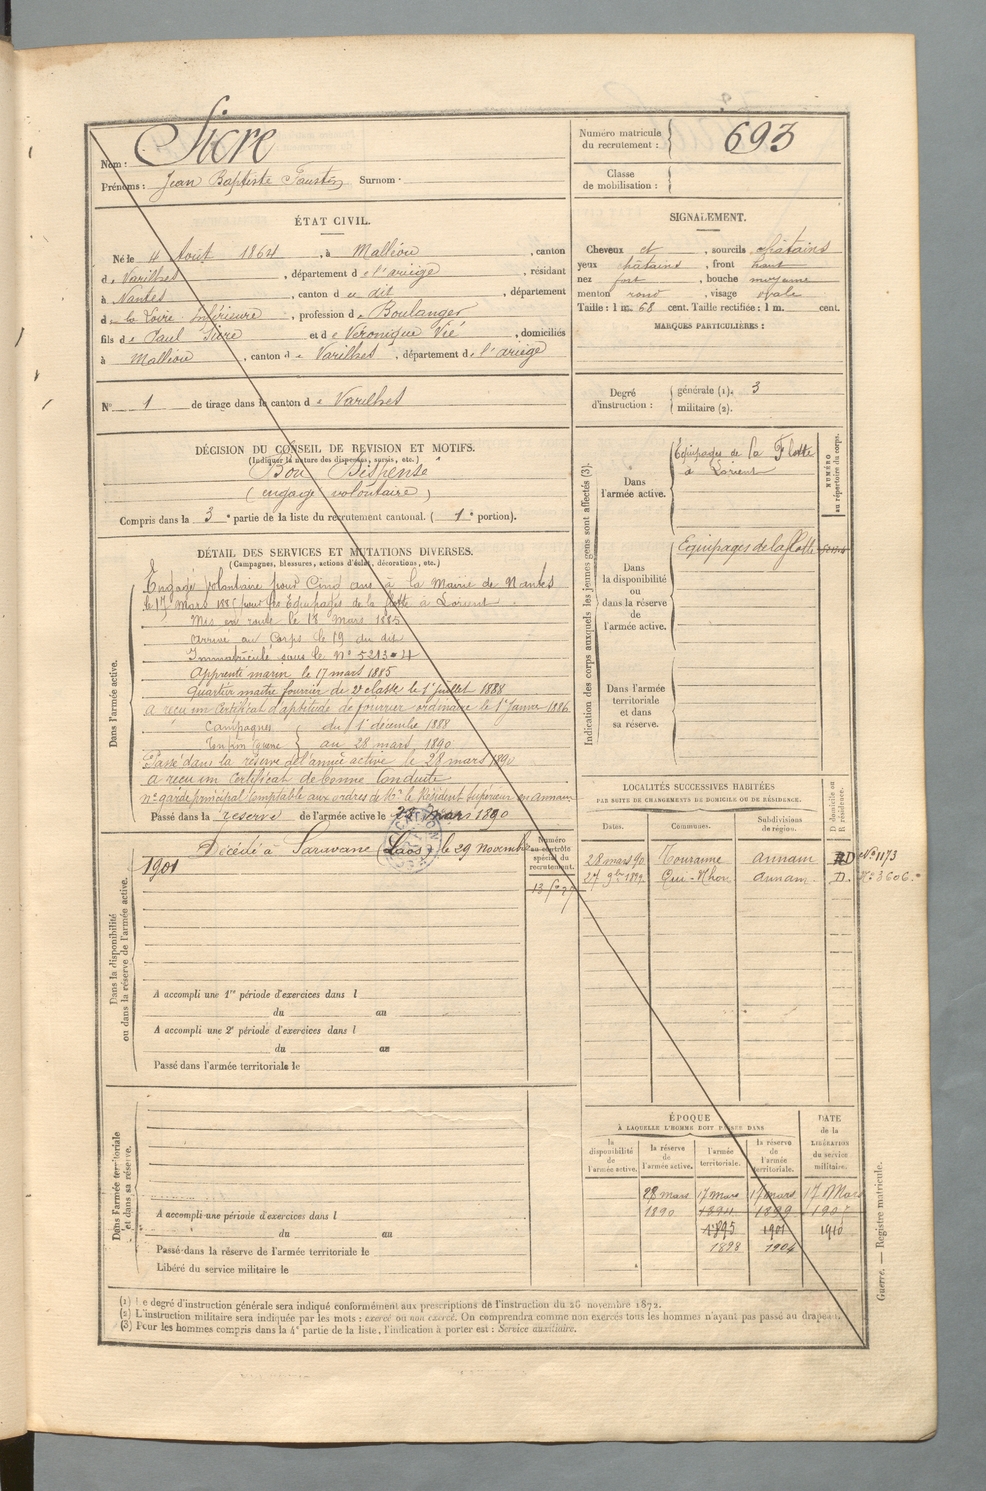 Nom : Sicre
Prénoms : Jean Baptiste Faustin Surnom :
Numéro matricule du recrutement : 693
Classe de mobilisation :
ÉTAT CIVIL.
Né le 4 Août 1864, à Malléon, canton
de Varilhes, département de l'ariège, résidant
à Nantes, canton de dit, département
de la Loire Inférieure, profession de Boulanger
fils de Paul Sicre et de Véronique Vié, domiciliés
à Malléon, canton de Varilhes, département de l'ariège
N° 1 de tirage dans le canton de Varilhes
SIGNALEMENT.
Cheveux et, sourcils châtains
yeux châtains, front haut
nez fort, bouche moyenne
menton rond, visage ovale
Taille : 1 m. 68 cent. Taille rectifiée : 1 m. cent.
MARQUES PARTICULIÈRES :
Degré d'instruction : générale (1). 3
militaire (2).
DÉCISION DU CONSEIL DE REVISION ET MOTIFS.
(Indiquer la nature des dispenses, sursis, etc.)
Bon Dispensé
(engagé volontaire)
Compris dans la 3e partie de la liste du recrutement cantonal. (1e portion).
DÉTAIL DES SERVICES ET MUTATIONS DIVERSES.
(Campagnes, blessures, actions d'éclat, décorations, etc.)
Dans l'armée active.
Engagé volontaire pour Cinq ans à la Mairie de Nantes
le 17 Mars 1885 pour les Equipages de la flotte à Lorient.
Mis en route le 18 Mars 1885
Arrivé au Corps le 19 du dit
Immatriculé sous le N° 5213=4
Apprenti marin le 17 mars 1885
Quartier maître fourrier de 2e classe le 1er juillet 1888
a reçu un Certificat d'aptitude de fourrier ordinaire le 1er Janvier 1886
Campagnes du 1er décembre 1888
Tonkin Guerre au 28 mars 1890
Passé dans la réserve de l'armée active le 28 mars 1890
a reçu un Certificat de bonne Conduite
garde principal Comptable aux ordres de Mr le Résident Supérieur en Annam
Passé dans la réserve de l'armée active le 28 mars 1890
Dans la disponibilité ou dans la réserve de l'armée active.
Décédé à Saravane (Laos) le 29 Novembre
1901
Numéro au contrôle spécial du recrutement.
A accompli une 1re période d'exercices dans l
du au
A accompli une 2e période d'exercices dans l
du au
Passé dans l'armée territoriale le
Dans l'armée territoriale et dans sa réserve.
A accompli une période d'exercices dans l
du au
Passé dans la réserve de l'armée territoriale le
Libéré du service militaire le
Indication des corps auxquels les jeunes gens sont affectés (3).
NUMÉRO au répertoire du corps.
Dans l'armée active.
Equipages de la Flotte
à Lorient
Dans la disponibilité ou dans la réserve de l'armée active.
Equipages de la flotte
Dans l'armée territoriale et dans sa réserve.
LOCALITÉS SUCCESSIVES HABITÉES
PAR SUITE DE CHANGEMENTS DE DOMICILE OU DE RÉSIDENCE.
Dates. Communes. Subdivisions de région. D domicile ou R résidence.
28 mars 90 Touranne Annam D N° 1173
27 9bre 1892 Qui-Nhon Annam D. N° 3606.
ÉPOQUE
À LAQUELLE L'HOMME DOIT PASSER DANS
la disponibilité de l'armée active. la réserve de l'armée active. l'armée territoriale. la réserve de l'armée territoriale.
DATE de la LIBÉRATION du service militaire.
28 mars 17 Mars 17 mars 17 Mars
1890 1894 1899 1905
1895 1901 1910
1898 1904
(1) Le degré d'instruction générale sera indiqué conformément aux prescriptions de l'instruction du 26 novembre 1872.
(2) L'instruction militaire sera indiquée par les mots : exercé ou non exercé. On comprendra comme non exercés tous les hommes n'ayant pas passé au drapeau.
(3) Pour les hommes compris dans la 4e partie de la liste, l'indication à porter est : Service auxiliaire.
Guerre. — Registre matricule.